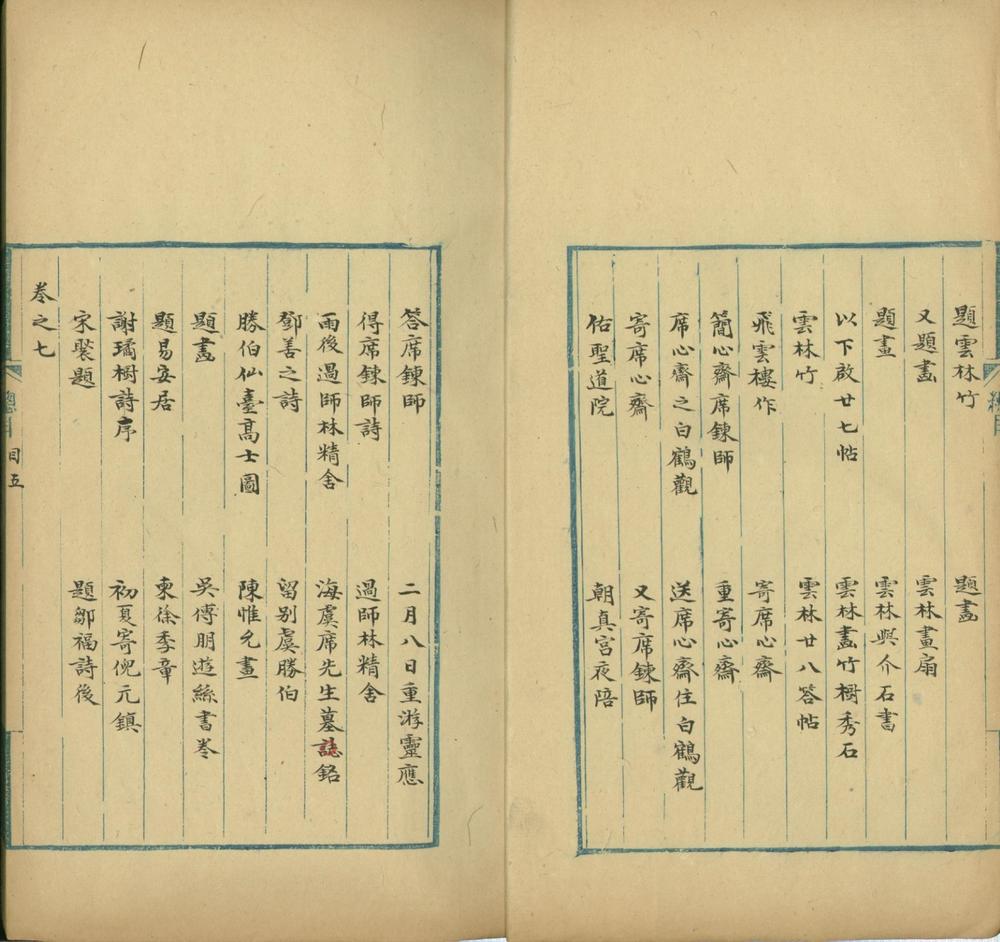 題雲林竹　題畫
又題畫　雲林畫扇
題畫　雲林與介石書
以下啟廿七帖　雲林畫竹樹秀石
雲林竹　雲林廿八答帖
飛雲樓作　寄席心齋
簡心齋席鍊師　重寄心齋
席心齋之白鶴觀　送席心齋住白鶴觀
寄席心齋　又寄席鍊師
佑聖道院　朝真宮夜陪
答席鍊師　二月八日重游靈應
得席鍊師詩　過師林精舍
雨後過師林精舍　海虞席先生墓誌銘
鄧善之詩　留別虞勝伯
勝伯仙臺高士圖　陳惟允畫
題畫　吳傅朋遊絲書卷
題易安居　柬徐季章
謝璚樹詩序　初夏寄倪元鎮
宋褧題　題鄒福詩後
卷之七
總目　目五